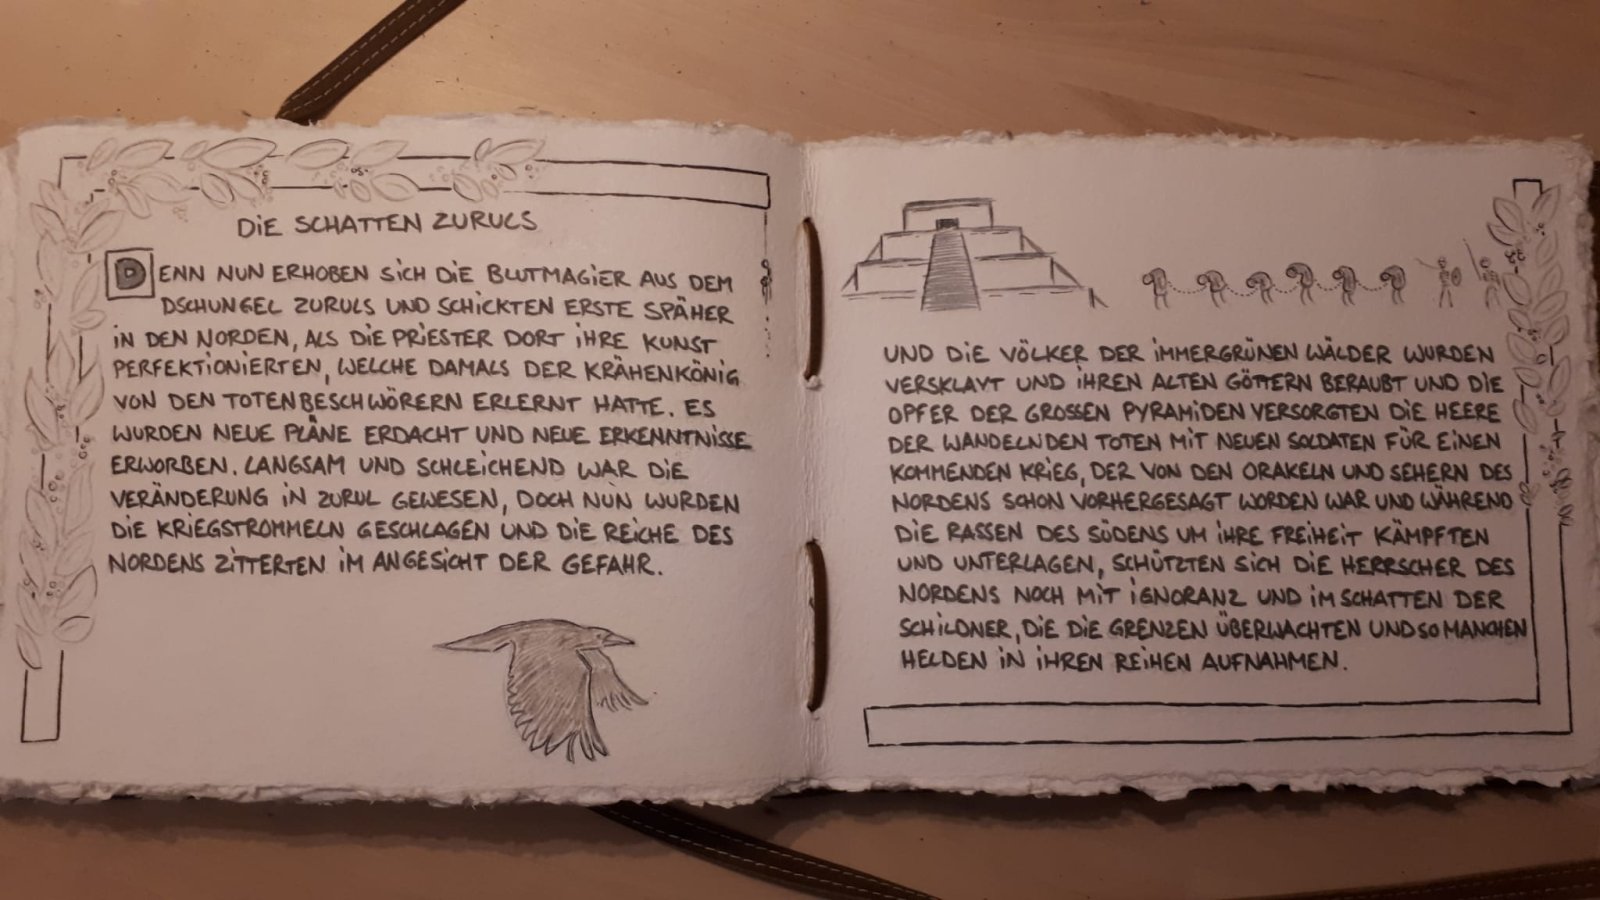 DIE SCHATTEN ZURULS
DENN NUN ERHOBEN SICH DIE BLUTMAGIER AUS DEM
DSCHUNGEL ZURULS UND SCHICKTEN ERSTE SPÄHER
IN DEN NORDEN, ALS DIE PRIESTER DORT IHRE KUNST
PERFEKTIONIERTEN, WELCHE DAMALS DER KRÄHENKÖNIG
VON DEN TOTENBESCHWÖRERN ERLERNT HATTE. ES
WURDEN NEUE PLÄNE ERDACHT UND NEUE ERKENNTNISSE
ERWORBEN. LANGSAM UND SCHLEICHEND WAR DIE
VERÄNDERUNG IN ZURUL GEWESEN, DOCH NUN WURDEN
DIE KRIEGSTROMMELN GESCHLAGEN UND DIE REICHE DES
NORDENS ZITTERTEN IM ANGESICHT DER GEFAHR.
UND DIE VÖLKER DER IMMERGRÜNEN WÄLDER WURDEN
VERSKLAVT UND IHREN ALTEN GÖTTERN BERAUBT UND DIE
OPFER DER GROSSEN PYRAMIDEN VERSORGTEN DIE HEERE
DER WANDELNDEN TOTEN MIT NEUEN SOLDATEN FÜR EINEN
KOMMENDEN KRIEG, DER VON DEN ORAKELN UND SEHERN DES
NORDENS SCHON VORHERGESAGT WORDEN WAR UND WÄHREND
DIE RASSEN DES SÜDENS UM IHRE FREIHEIT KÄMPFTEN
UND UNTERLAGEN, SCHÜTZTEN SICH DIE HERRSCHER DES
NORDENS NOCH MIT IGNORANZ UND IM SCHATTEN DER
SCHILDNER, DIE DIE GRENZEN ÜBERWACHTEN UND SO MANCHEN
HELDEN IN IHREN REIHEN AUFNAHMEN.